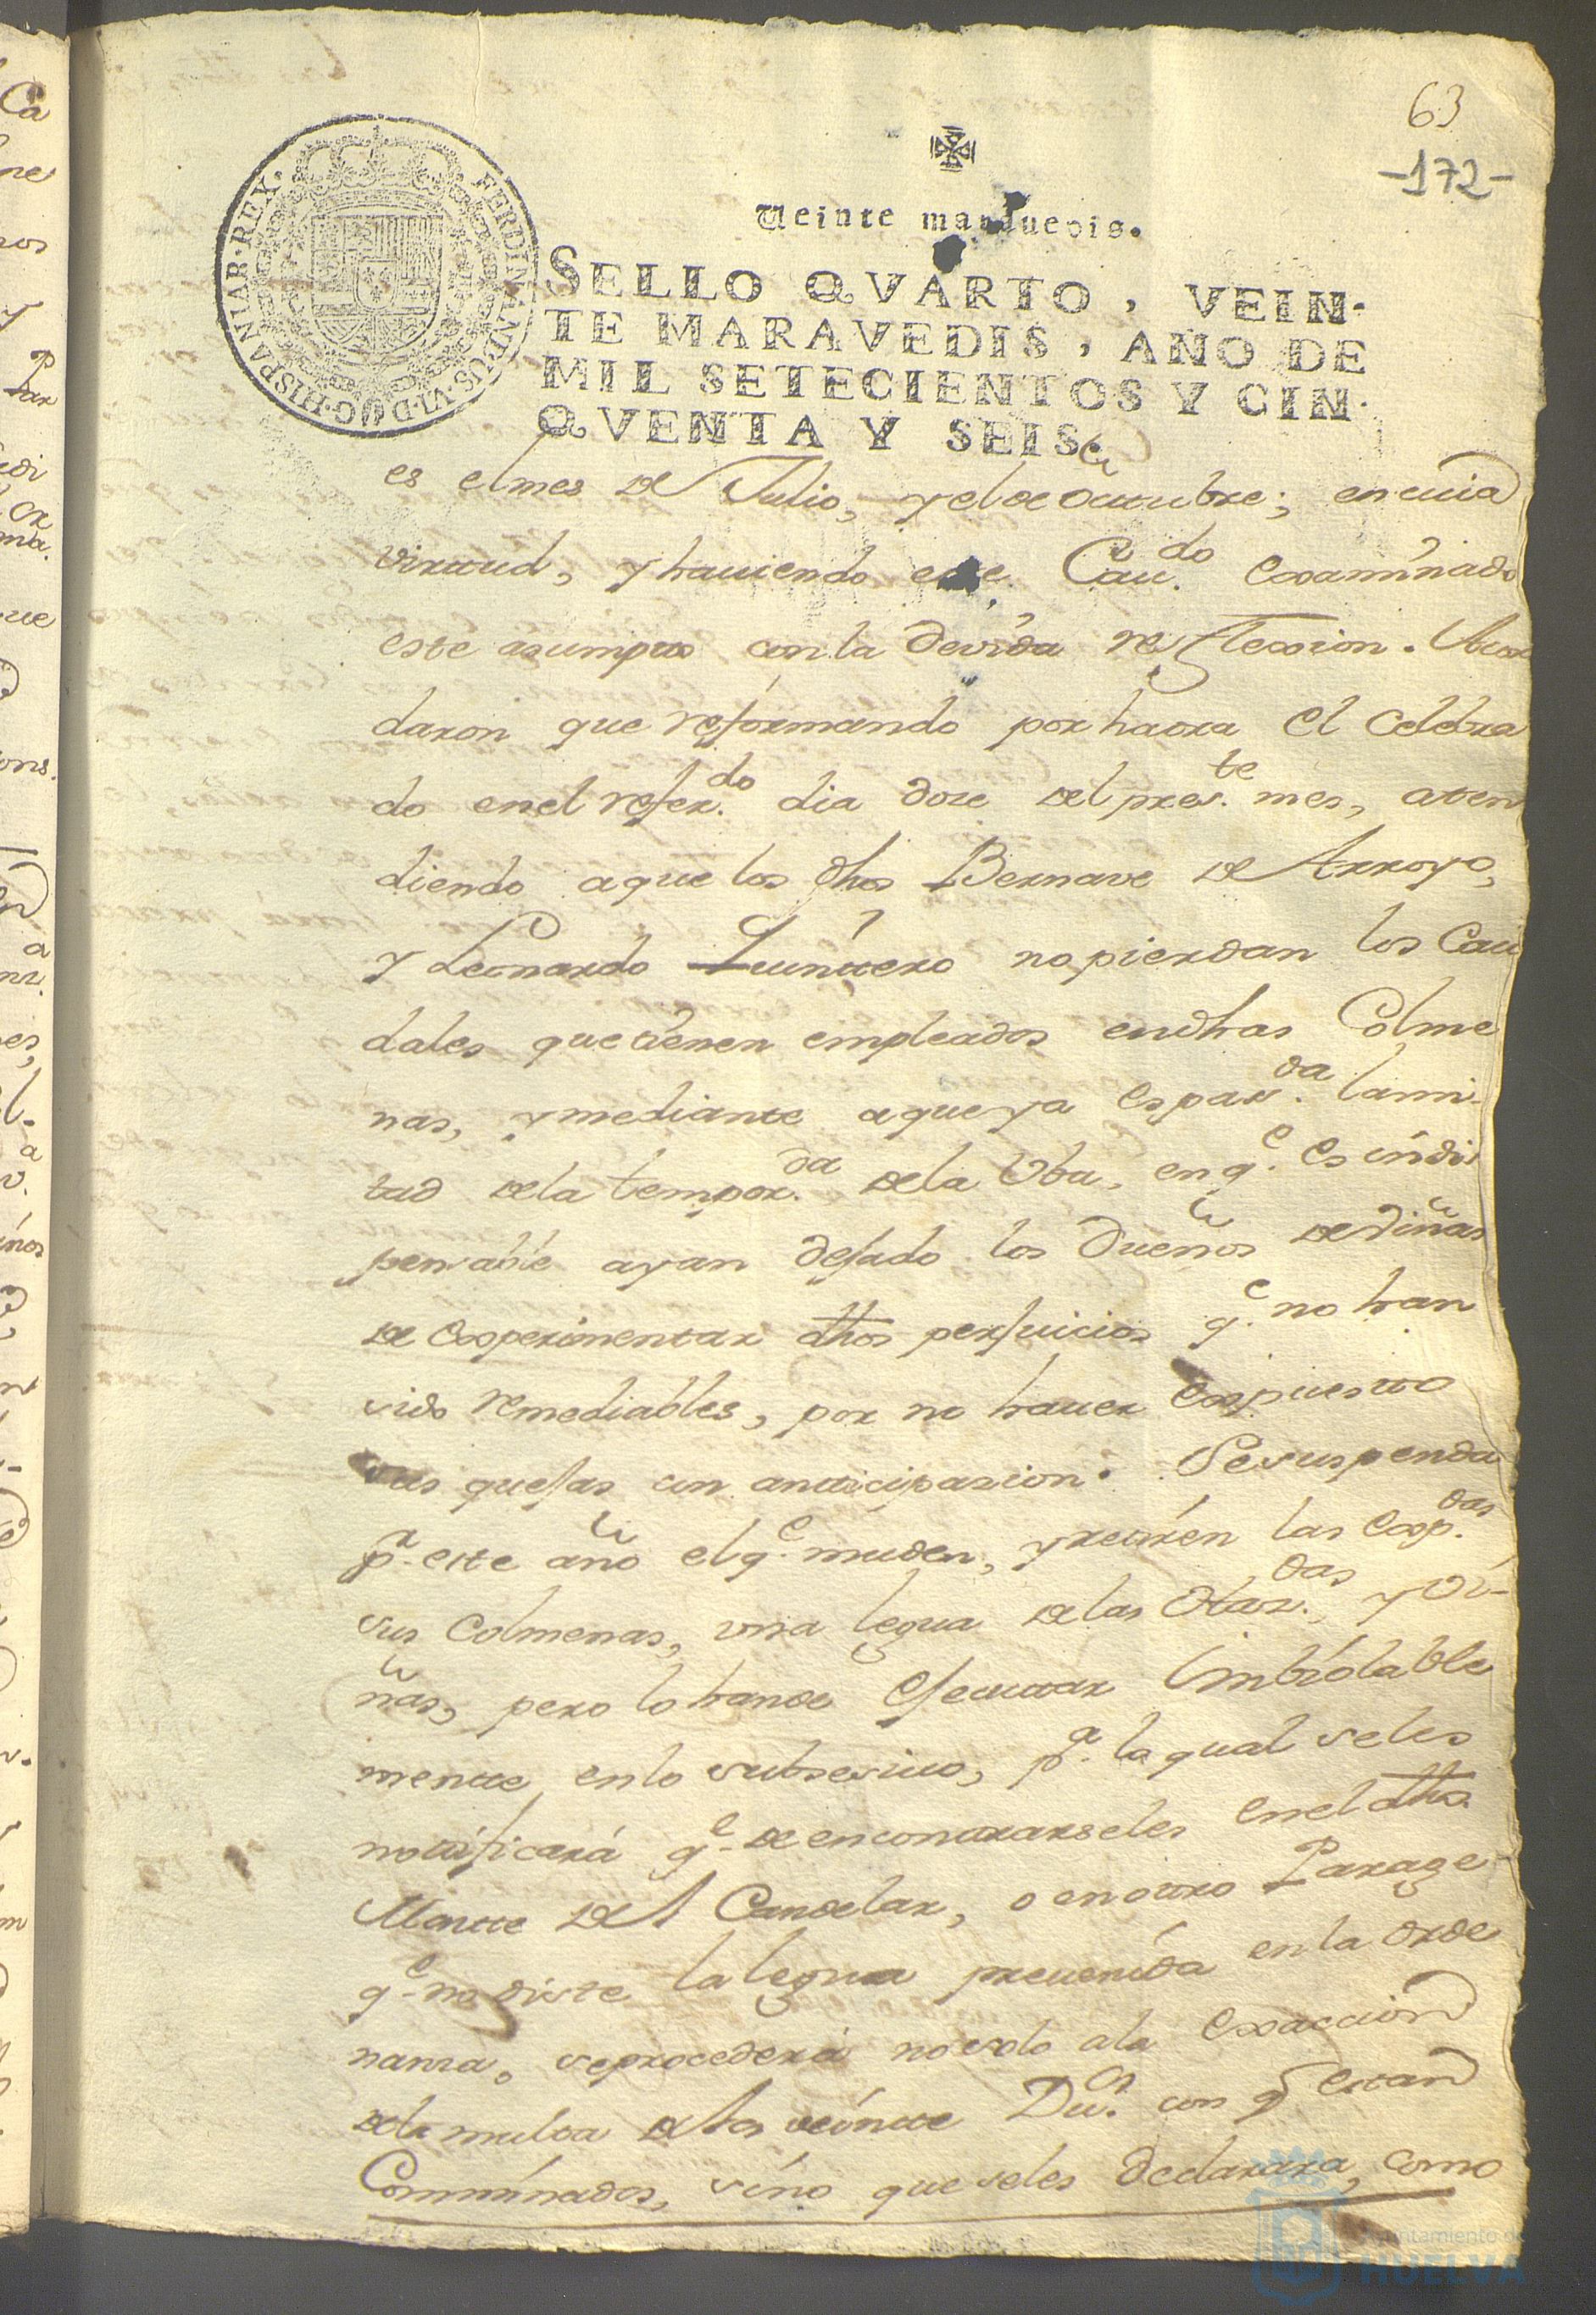 63
-172-
FERDINANDUS·VI·D·G·HISPANIAR·REX·
Veinte maravedis.
SELLO QVARTO, VEIN-
TE MARAVEDIS, AÑO DE
MIL SETECIENTOS Y CIN-
QVENTA Y SEIS.
es el mes de Julio, y el de Octtubre; en cuia
virttud, y haviendo este Cav.do examinado
este asumpto con la devida reflexion. Acor
daron que reformando por haora el celebra
do en el refer.do dia doze del pres.te mes, aten
diendo a que los dhos Bernave de Arroyo,
y Leonardo Quinttero no pierdan los Cau
dales que tienen empleados en dhas Colme
nas, y mediante a que ya es pas.da la mi-
tad de la tempor.da de la Vba, en q.e es indis
pensable ayan dejado los Dueños de Viñas
de experimentar dhos perjuicios q.e no han
sido remediables, por no haver expuesto
sus quejas con antticipazion. Se suspenda
p.r este año el q.e muden, y retiren las exp.das
sus Colmenas, una legua de las haz.das, y Vi-
ñas, pero lo han de ejecuttar imbiolable
mentte en lo subsesivo, p.a la qual se les
nottificará q.e de encontrarseles en el dho
Montte del Candelar, o en otro Parage
q.e no diste la legua prevenida en la orde
nanza, se procederá no solo a la exaccion
de la multa de los veintte Du.s con q.e estan
Comminados, sino que se les declarara, como
Ayuntamiento de
HUELVA